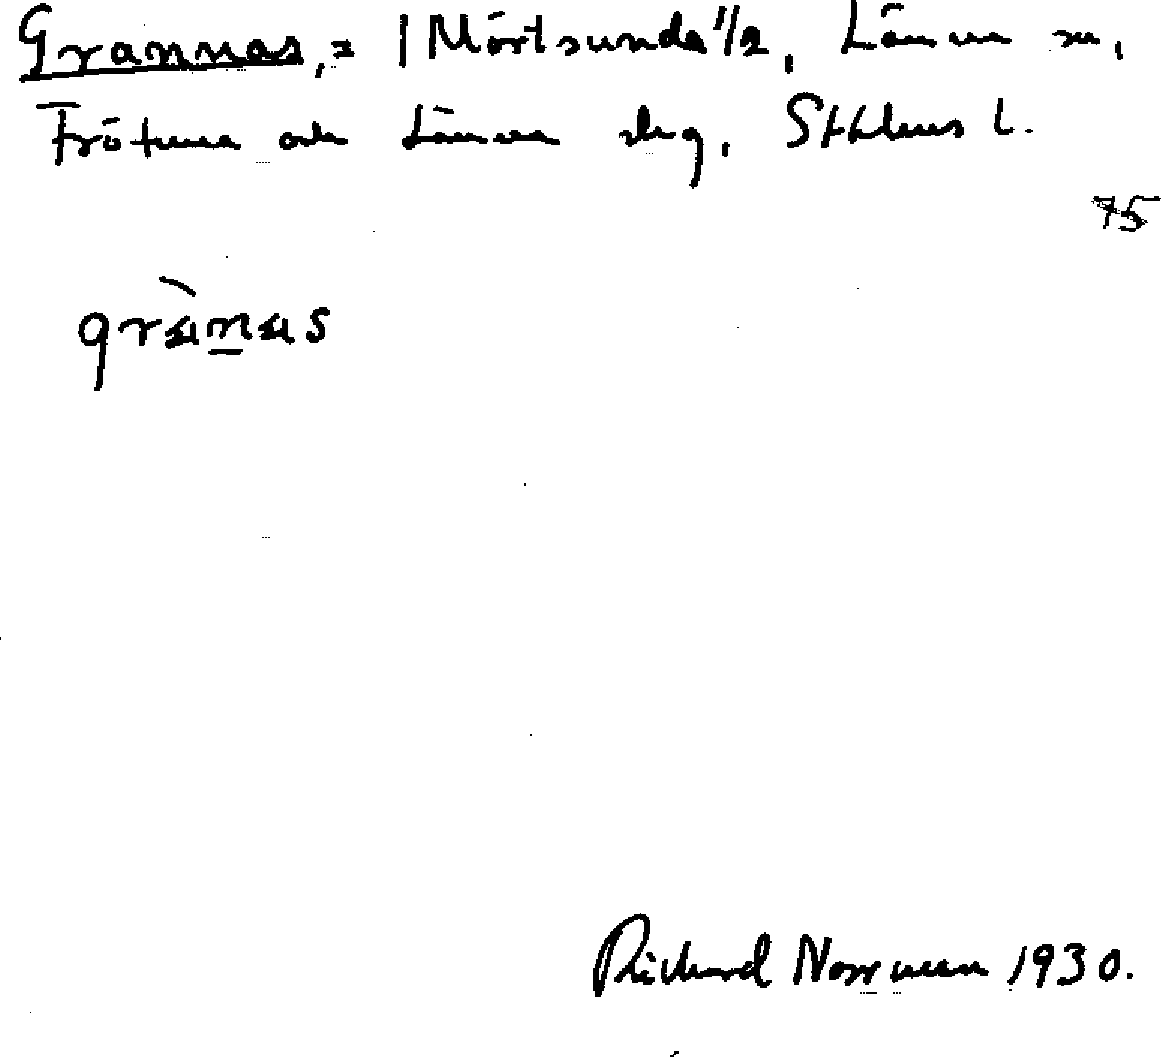 Grannas, = 1 Mörtsunda 1/2, Länna sn,
Frötuna och Länna skg, Sthlms l.
75
grànas
Richard Norrman 1930.